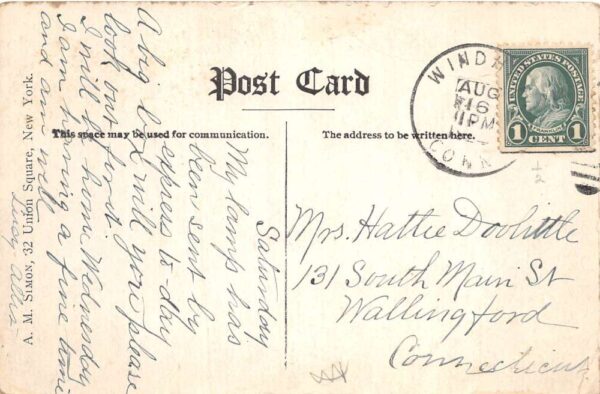 Post Card
This space may be used for communication.
The address to be written here.
A. M. SIMON, 32 Union Square, New York.
Saturday
My lamp has
been sent by
express to day
A big box will you please
look out for it
I will be home Wednesday
I am having a fine time
and am well
Mrs. Hattie Doolittle
131 South Main St
Wallingford
Connecticut
AUG
16
1PM
CONN
UNITED STATES POSTAGE
FRANKLIN
1 1
CENT
1/2